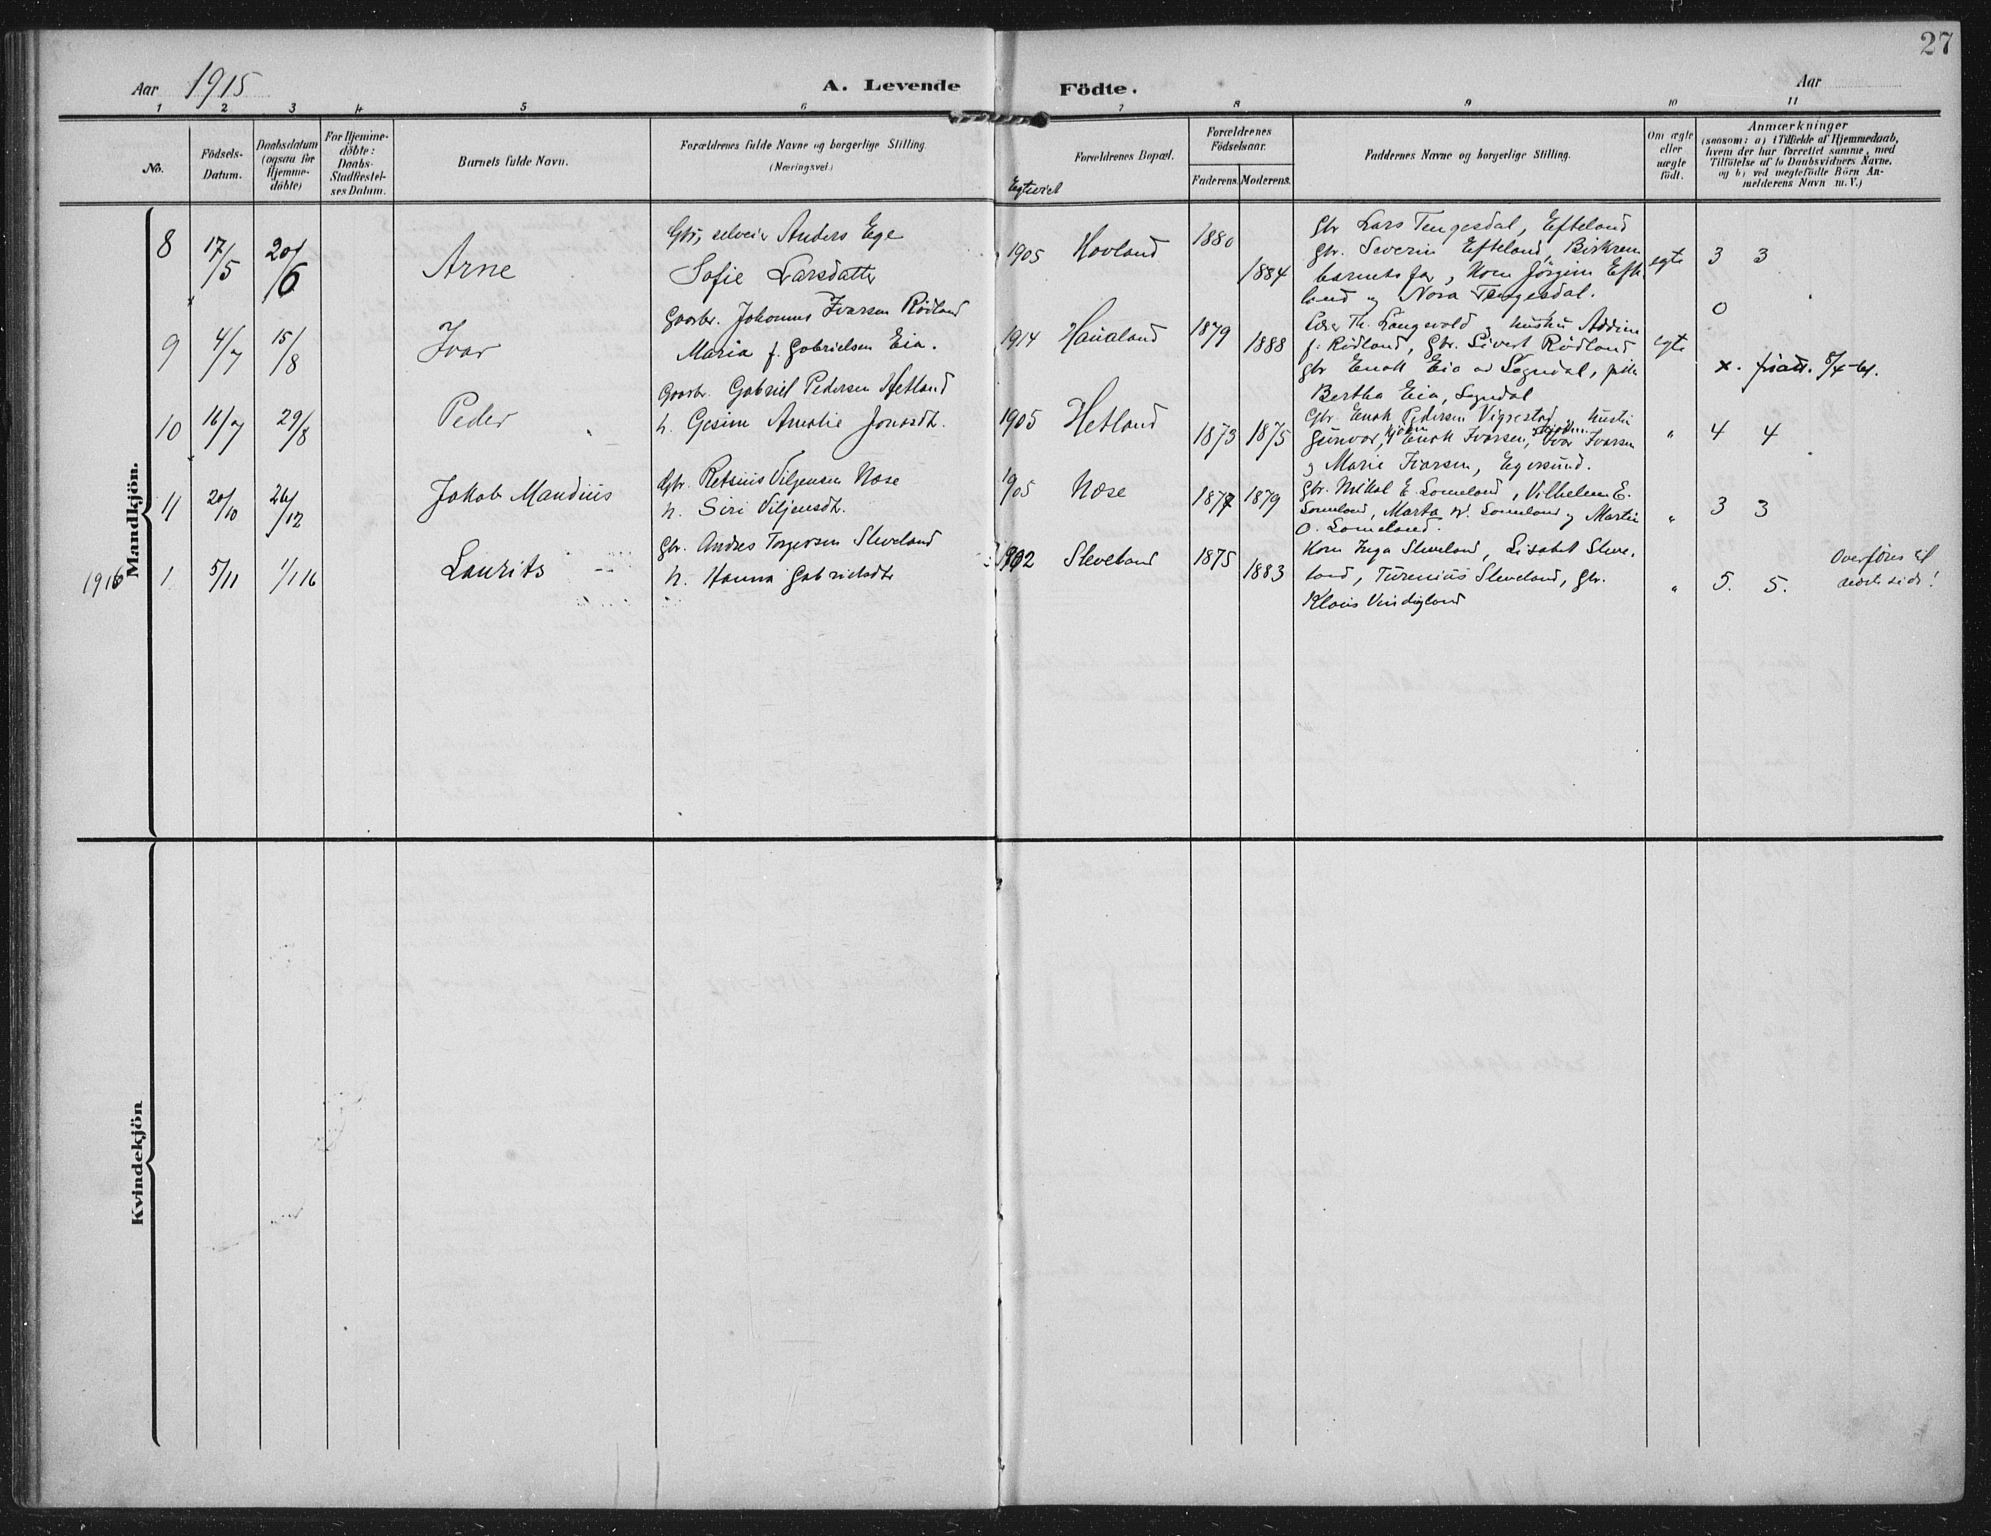 27
Aar 1915
A. Levende Födte.
Aar
1 2 3 4 5 6 7 8 9 10 11
No.
Födsels-
Datum.
Daabsdatum
(ogsaa for
Hjemme-
döbte)
For Hjemme-
döbte:
Daabs-
Stadfestel-
ses Datum.
Barnets fulde Navn.
Forældrenes fulde Navne og borgerlige Stilling
(Næringsvei.)
Forældrenes Bopæl.
Egteviet
Forældrenes
Födselsaar.
Faderens. Moderens.
Faddernes Navne og borgerlige Stilling.
Om ægte
eller
uægte
födt.
Anmærkninger
(saasom: a) i Tilfælde af Hjemmedaab,
hvem der har forrettet samme, med
Tilföielse af to Daabsvidners Navne,
og b) ved uægtefödte Börn An-
melderens Navn m. V.)
Mandkjön.
8 17/5 20/6 Arne
Gbr, selveier Anders Ege
Sofie Larsdatter
1905 Hovland 1880 1884
Gbr Lars Tengesdal, Efteland
Gbr. Severin Efteland, Birkrem
barnets far, Kone Jörgine Efte
land og Nora Tengesdal.
egte 3 3
9 4/7 15/8 Ivar
Gaardbr. Johannes Ivarsen Rödland
Maria f. Gabrielsen Eia.
1914 Haualand 1879 1888
Th. Langevold og hustru
f. Rödland, Gbr. Sivert Rödland
gbr Enok Eia av Sogndal, pike
Bertha Eia, Sogndal
egte 0
x.
10 16/7 29/8 Peder
Gaardbr. Gabriel Pedersen Hetland
h. Gesine Amalie Jonasdt.
1905 Hetland 1873 1875
Gbr. Enok Pedersen Vigrestad og hustru
Gunvor, Enok Ivarsen, Ivar Ivarsen
og Marie Ivarsen, Egersund.
" 4 4
11 20/10 26/12 Jakob Mandius
Gbr. Retsius Viljensen Næse
h. Siri Viljensdt.
1905 Næse 1877 1879
Gbr. Mikal E. Lomeland, Vilhelm E.
Lomeland, Marta W. Lomeland og Martin
O. Lomeland.
" 3 3
1916 1. 5/11 1/1 16 Laurits
Gbr. Andres Torgersen Sleveland
h. Hanna Gabrielsdtr
1902 Sleveland 1875 1883
Kone Inga Sleveland, Lisabet Sleve-
land, Turenius Sleveland, Gbr.
Klaus Vindigland
" 5. 5.
Overföres til
næste side!
Kvindekjön